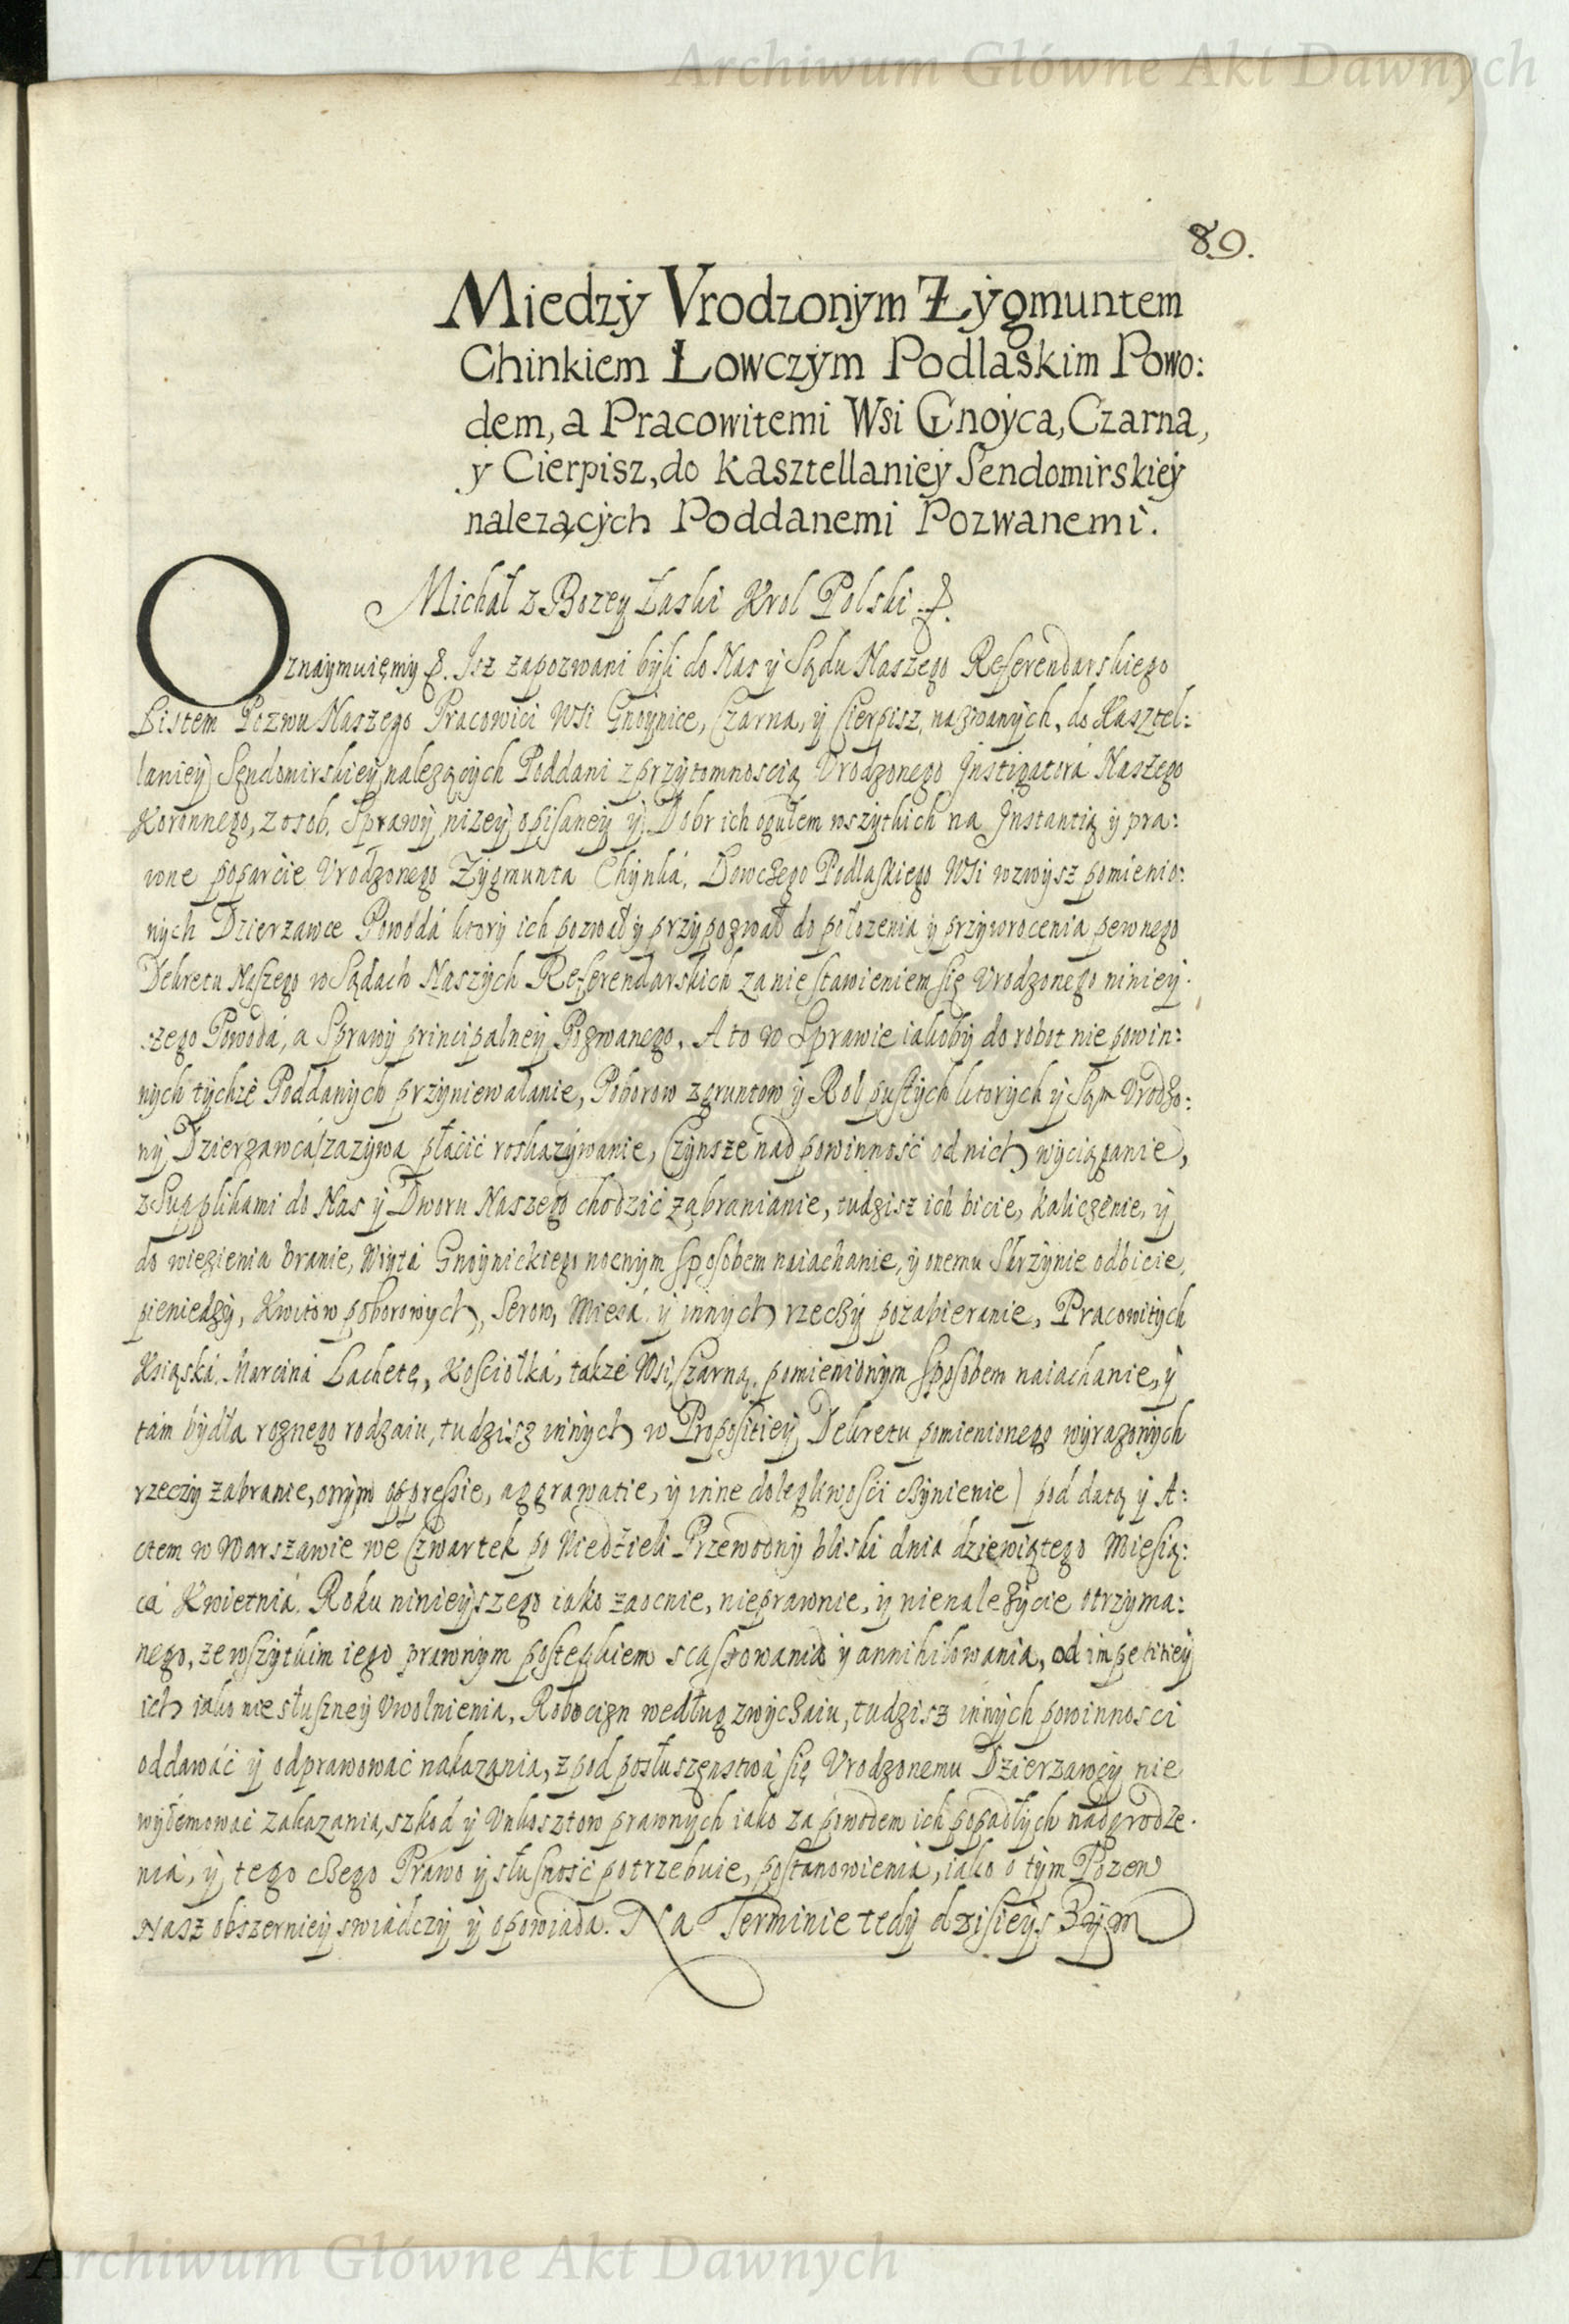 Archiwum Główne Akt Dawnych
89.
Miedzÿ Vrodzonÿm Zÿgmuntem
Chinkiem Łowczÿm Podlaskim Powo:
dem, a Pracowitemi Wsi Gnoÿca, Czarna,
ÿ Cierpisz, do Kasztellanieÿ Sendomirskieÿ
nalezącÿch Poddanemi Pozwanemi.
Michał z Bozeÿ Łaski Krol Polski &.
Oznaÿmuięmÿ &. Isz zapozwani bÿli do Nas ÿ Sądu Naszego Referendarskiego
Listem Pozwu Naszego Pracowici Wsi Gnoÿnice, Czarna, ÿ Cierpisz nazwanÿch, do Kasztel:
lanieÿ Sendomirskieÿ nalezącÿch Poddani z przÿtomnoscią Vrodzonego Instigatorá Naszego
Koronnego, z osob, Sprawÿ nizeÿ opisaneÿ ÿ Dobr ich ogułem wszÿtkich na Instantią ÿ pra:
wne poparcie Vrodzonego Zÿgmunta Chÿnká, Łowczego Podlaskiego Wsi wzwÿsz pomienio:
nÿch Dzierzawce Powodá ktorÿ ich pozwał ÿ przÿpozwał do połozenia ÿ przÿwrocenia pewnego
Dekretu Naszego w Sądach Naszÿch Referendarskich za nie stawieniem się Vrodzonego ninieÿ:
szego Powodá, a Sprawÿ principalneÿ Pozwanego. A to w Sprawie iakobÿ do robot nie powin:
nÿch tÿchże Poddanÿch przÿniewalanie, Poborow z gruntow ÿ Rol pustÿch ktorÿch ÿ Sąm Vrodzo:
nÿ Dzierzawcá zazÿwa płácić roskazÿwanie, Czÿnsze nad powinność od nich wÿciąganie,
z Supplikami do Nas ÿ Dworu Naszego chodzić ząbranianie, tudzisz ich bicie, kaliczenie, ÿ
do wiezienia branie, Woÿtá Gnoÿnickiego nocnÿm sposobem naiachanie, ÿ onemu Skrzÿnie odbicie,
pieniedzÿ, Kwitow poborowÿch, Serow, Miesá ÿ innÿch rzeczÿ pozabieranie, Pracowitÿch
Książká, Marciná Lachetę, Kosciołká, także Wsi Czarną, pomienionÿm sposobem naiachanie, ÿ
tám bÿdła roznego rodzaiu, tudzisz innÿch w Propositieÿ Dekretu pomienionego wÿrazonÿch
rzeczÿ zabranie, onÿm oppressie, aggrawatie, ÿ inne dolegliwości czÿnienie) pod datą ÿ A:
ctem w Warszawie we Czwartek po Niedzieli Przewodnÿ bliski dnia dziewiątego Miesią:
cá Kwietniá. Roku ninieÿszego iako zaocnie, nieprawnie, ÿ nienalezÿcie otrzÿma:
nego, ze wszÿtkim iego prawnÿm postepkiem scąssowania ÿ annihilowania, od impetitieÿ
ich iako niesłuszneÿ Vwolnienia, Robocizn według zwÿczaiu, tudzisz innÿch powinnosci
oddawáć ÿ odprawować nakazania, z pod posłuszęnstwá się Vrodzonemu Dzierzawcÿ nie
wÿłemować zakazania, szkod ÿ Vnkosztow prawnÿch iako za powodem ich popadłÿch nádgrodze:
niá, ÿ tego czego Prawo ÿ słusność potrzebuie, postanowienia, iako o tÿm Pozew
Nasz obszernieÿ swiádczÿ ÿ opowiáda. Na Terminie tedÿ dzisieÿszÿm
Archiwum Główne Akt Dawnych